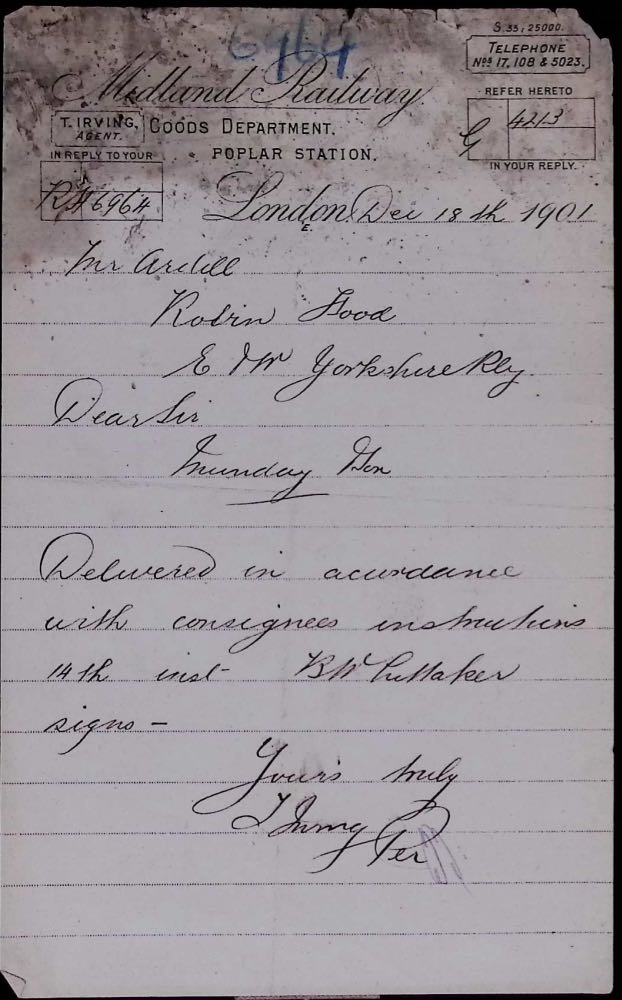 6964
S.35, 25000.
TELEPHONE
Nos 17, 108 & 5023.
Midland Railway
REFER HERETO
T. IRVING, AGENT.
GOODS DEPARTMENT,
G 4213
IN REPLY TO YOUR
POPLAR STATION,
IN YOUR REPLY.
6964
London E. Dec 18th 1901
Mr Ardill
Robin Hood
E & W Yorkshire Rly
Dear Sir
Munday
Delivered in acurdance
with consignees instructions
14th inst - B Whittaker
signs -
Yours truly
T Irving
Per